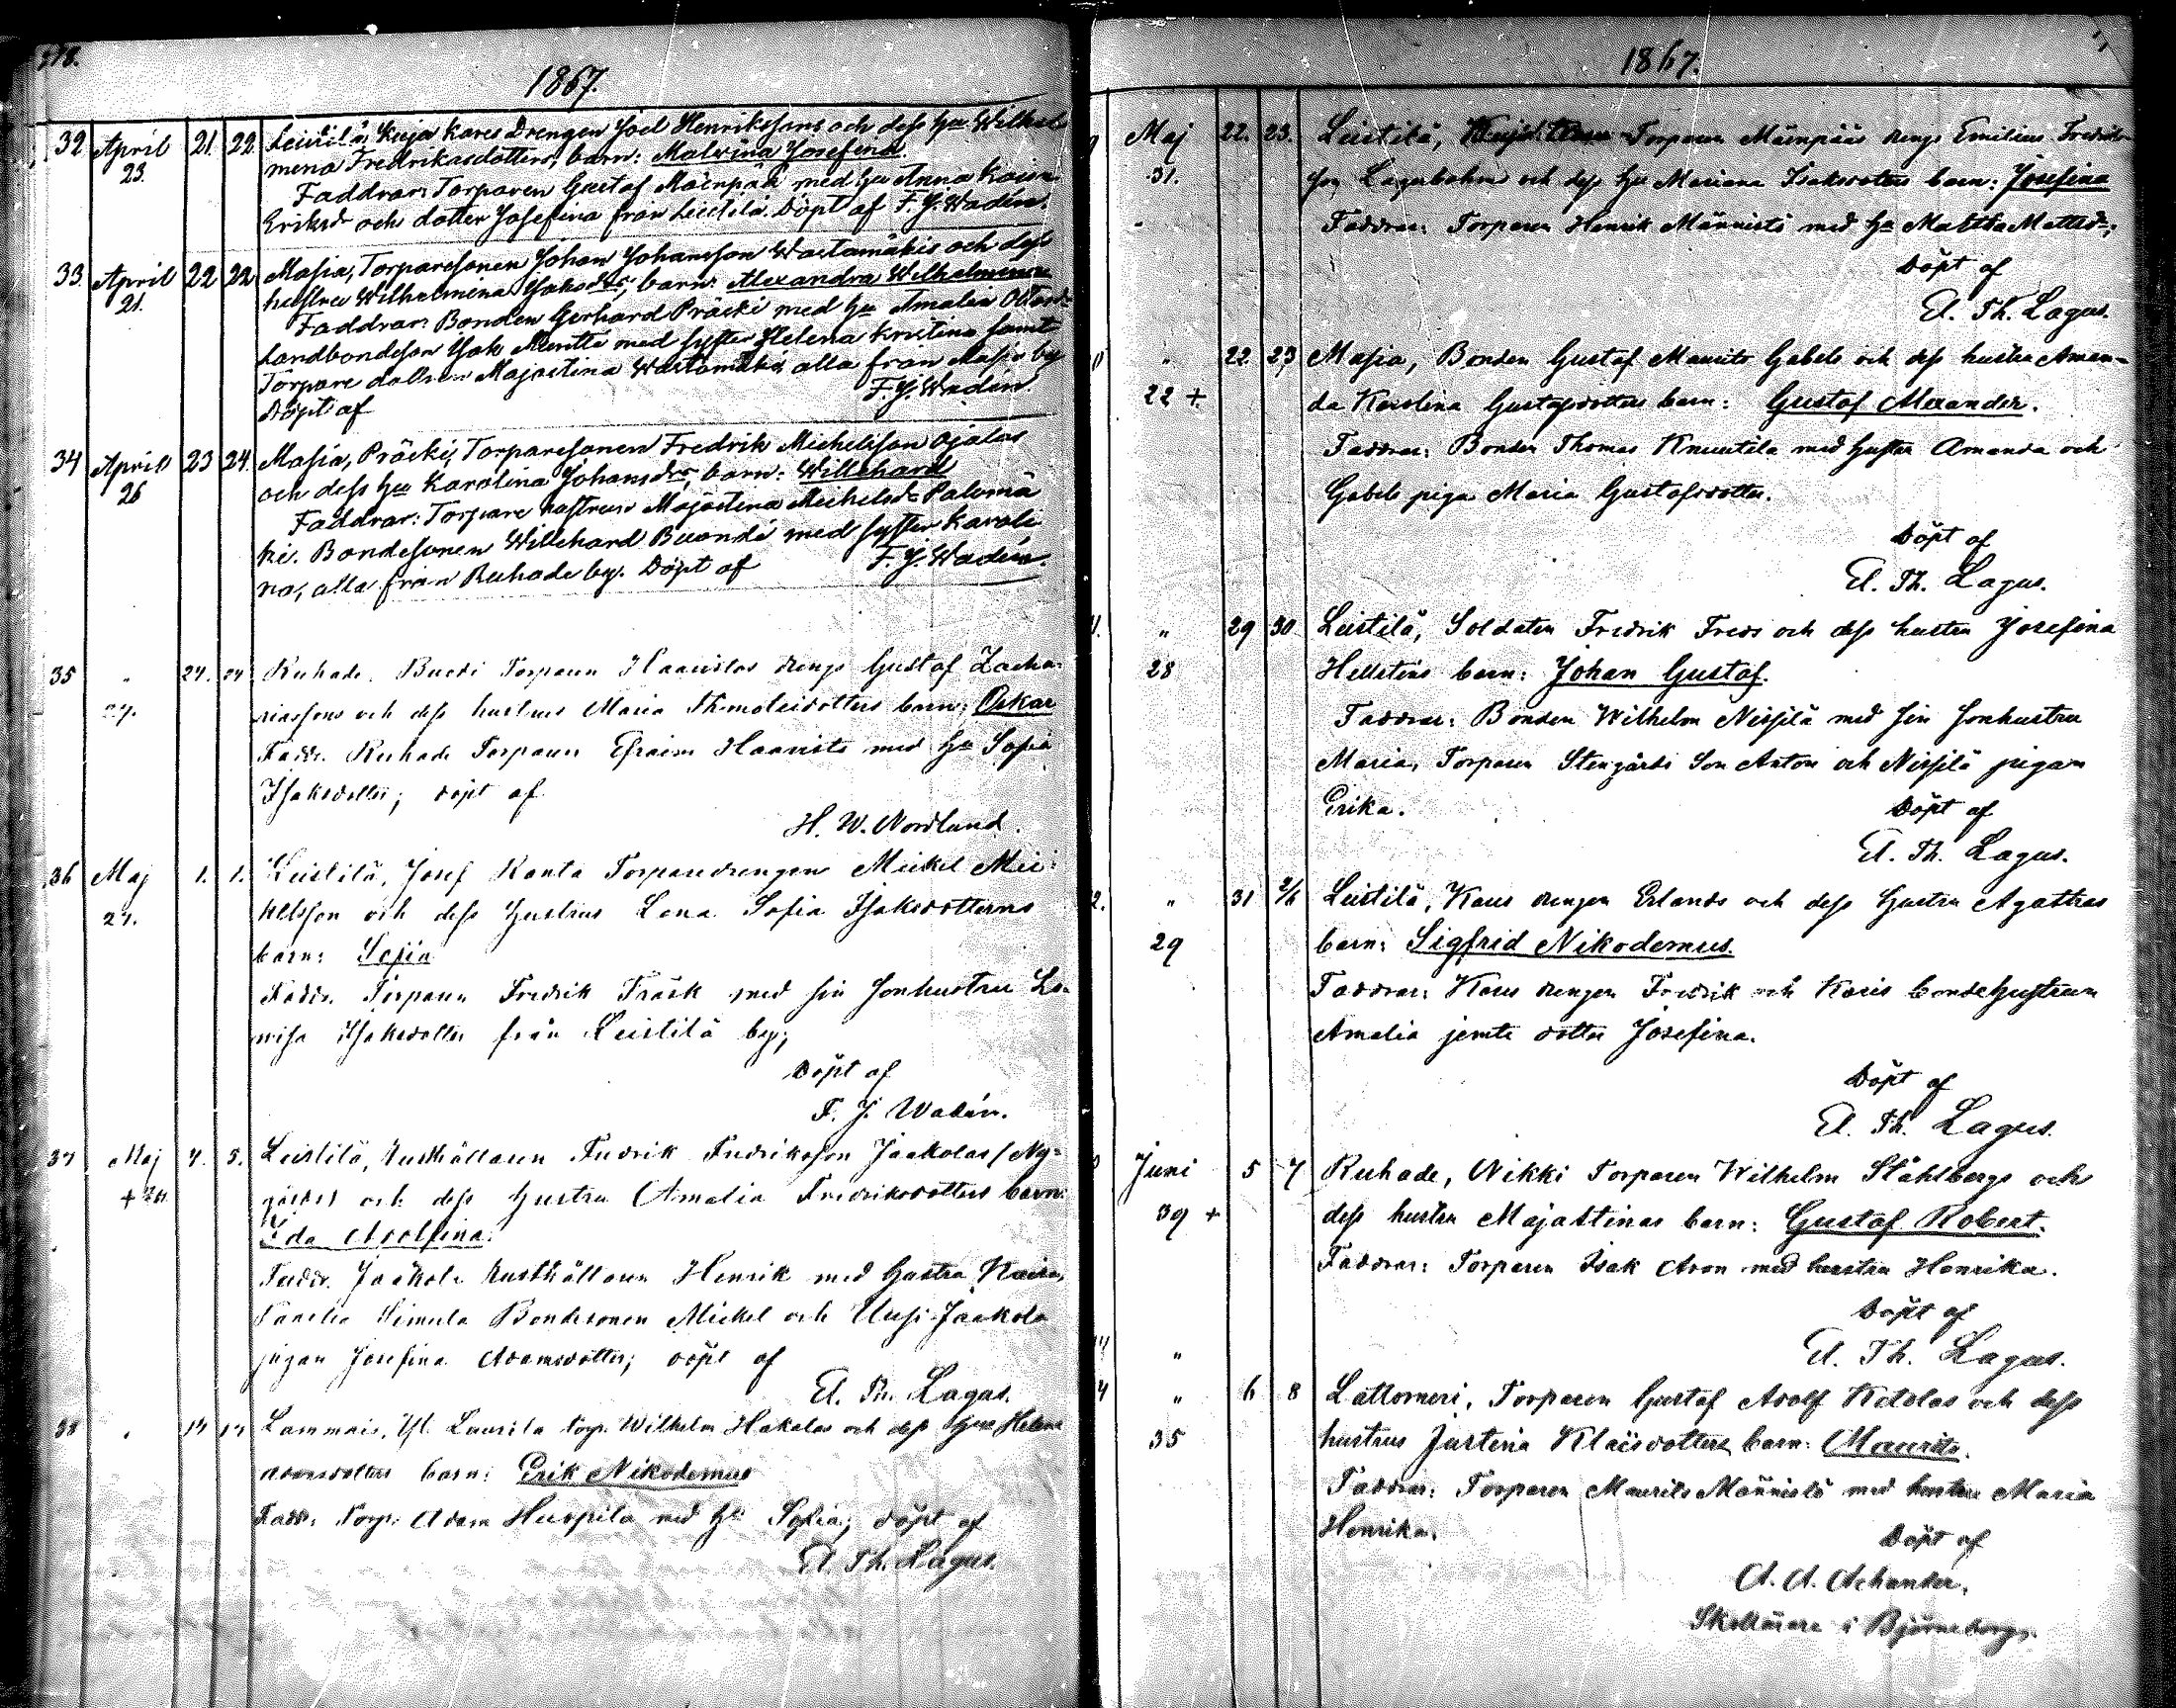 278.
1867.
32 April 21. 22. Leistilä, Kuja Kares Drengen Joel Henrikssons och dess Hu Wilhel
23. mena Fredriksdotters, barn: Malvina Josefina.
Faddrar: Torparen Gustaf Mäenpää med Hu Anna Kaisa
Eriksd och dotter Josefina från Leistilä. Döpt af F. J. Wadén.
33. April 22 22 Masia, Torparesonen Johan Johansson Wartamäkis och dess
21. hustru Wilhelmina Isaksdrs, barn: Alexandra Wilhelmina
Faddrar: Bonden Gerhard Präski med Hu Amalia
Landbondeson Isak Mentti med syster Helena Kristina samt
Torpare dottren Majastina Wartamäki alla från Masia by
Döpt af F. J. Wadén.
34 April 23 24. Masia, Präski, Torparesonen Fredrik Michelsson Ojalas
26 och dess Hu Karolina Johansdrs, barn: Willehard
Faddrar: Torpare hustrun Majastina Michelsdr Palomä
ki. Bondesonen Willehard Buandi med syster Karoli
na, alla från Ruhade by. Döpt af F. J. Wadén.
35 " 24. 24 Ruhade, Torparen Haavistos drengs Gustaf Zacha-
29. riassons och dess hustrus Maria Thimoteidotters barn: Oskar
Faddr. Ruhade Torparen Efraim Haavisto med Hu Sofia
Isaksdotter; döpt af
H. W. Nordlund.
36 Maj 1. 1. Leistilä, Josef Ranta Torparedrengen Mickel Mic-
27. kelsson och dess Hustrus Lena Sofia Isaksdotterns
barn: Sofia
Faddr. Torparen Fredrik Träsk med sin sonhustru Lo-
visa Isaksdotter från Leistilä by;
Döpt af
F. J. Wadén.
37 Maj 4. 5. Leistilä, Rusthållaren Fredrik Fredriksson Jaakolas / Ny-
+ gårds/ och dess Hustru Amalia Fredriksdotters barn:
Ida Adolfina.
Faddr. Jaakola Rusthållaren Henrik med Hustru Kaisa,
Simula Bondesonen Mickel och Uusi-Jaakola
pigan Josefina Adamsdotter; döpt af
E. Th. Lagus.
38 " 14 Lammais, Yl. Laurila torp. Wilhelm Hakalas och dess Hus Helena
Adamsdotters barn: Erik Nikodemus
Faddr. Torp. Adam Huspila med Hu Sofia; döpt af
E. Th. Lagus.
1867.
Maj 22. 23. Leistilä, Torparen Mäenpääs drengs Emilius Fredriks-
31. son Lagerbohms och dess Hus Mariana Isaksdotters barn: Josefina
Faddrar: Torparen Henrik Männistö med Hu Matilda Mattsdr;
Döpt af
E. Th. Lagus.
" 22. 23 Masia, Bonden Gustaf Maurits Gabels och dess hustru Aman-
22 + da Karolina Gustafsdotters barn: Gustaf Alexander.
Faddrar: Bonden Thomas Knuutila med Hustru Amanda och
Gabels piga Maria Gustafsdotter.
Döpt af
E. Th. Lagus.
" 29 30 Leistilä, Soldaten Fredrik Freds och dess hustru Josefina
28 Hellstens barn: Johan Gustaf.
Faddrar: Bonden Wilhelm Nissilä med sin sonhustru
Maria, Torparen Stengårds Son Anton och Nissilä pigan
Erika. Döpt af
E. Th. Lagus.
" 31 2/6 Leistilä, Kares drengen Erlands och dess Hustru Agathas
29 barn: Sigfrid Nikodemus.
Faddrar: Kares drengen Fredrik och Karis bondehustrun
Amalia jemte dotter Josefina.
Döpt af
E. Th. Lagus.
Juni 5 7 Ruhade, Nikki Torparen Wilhelm Ståhlbergs och
39 + dess hustru Majastinas barn: Gustaf Robert.
Faddrar: Torparen Isak Aron med hustru Henrika.
Döpt af
E. Th. Lagus.
"
" 6 8 Lattomeri, Torparen Gustaf Adolf Ketolas och dess
35 hustrus Justina Klasdotters barn: Maurits.
Faddrar: Torparen Maurits Männistö med hustru Maria
Henrika.
Döpt af
A. A. Achander.
Skollärare i Björneborg.